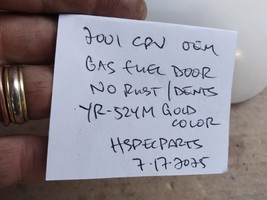 2001 CRV OEM
GAS FUEL DOOR
NO RUST/DENTS
YR-524M GOLD
COLOR
HSPECPARTS
7-17-2025